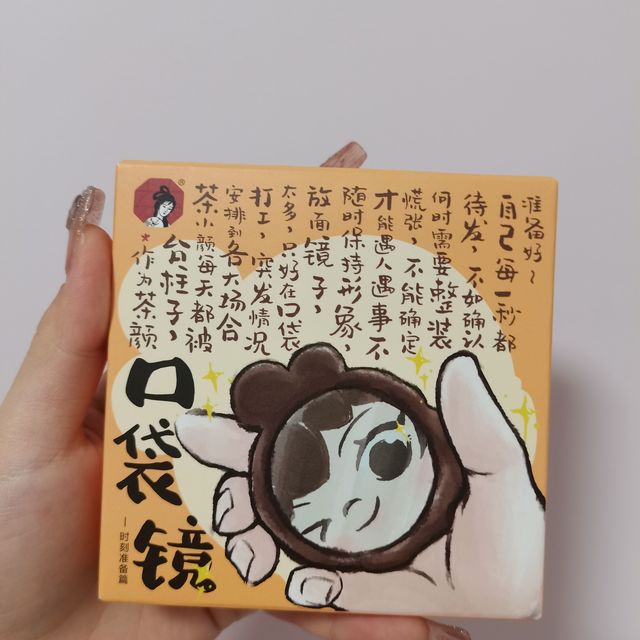 ★作为茶颜
台柱子，
茶小颜每天都被
安排到各大场合
打工，突发情况
太多，只好在口袋
放面镜子，
随时保持形象，
才能遇人遇事不
慌张，不能确定
何时需要整装
待发，不如确认
自己每一秒都
准备好～
口袋镜
—时刻准备篇
®